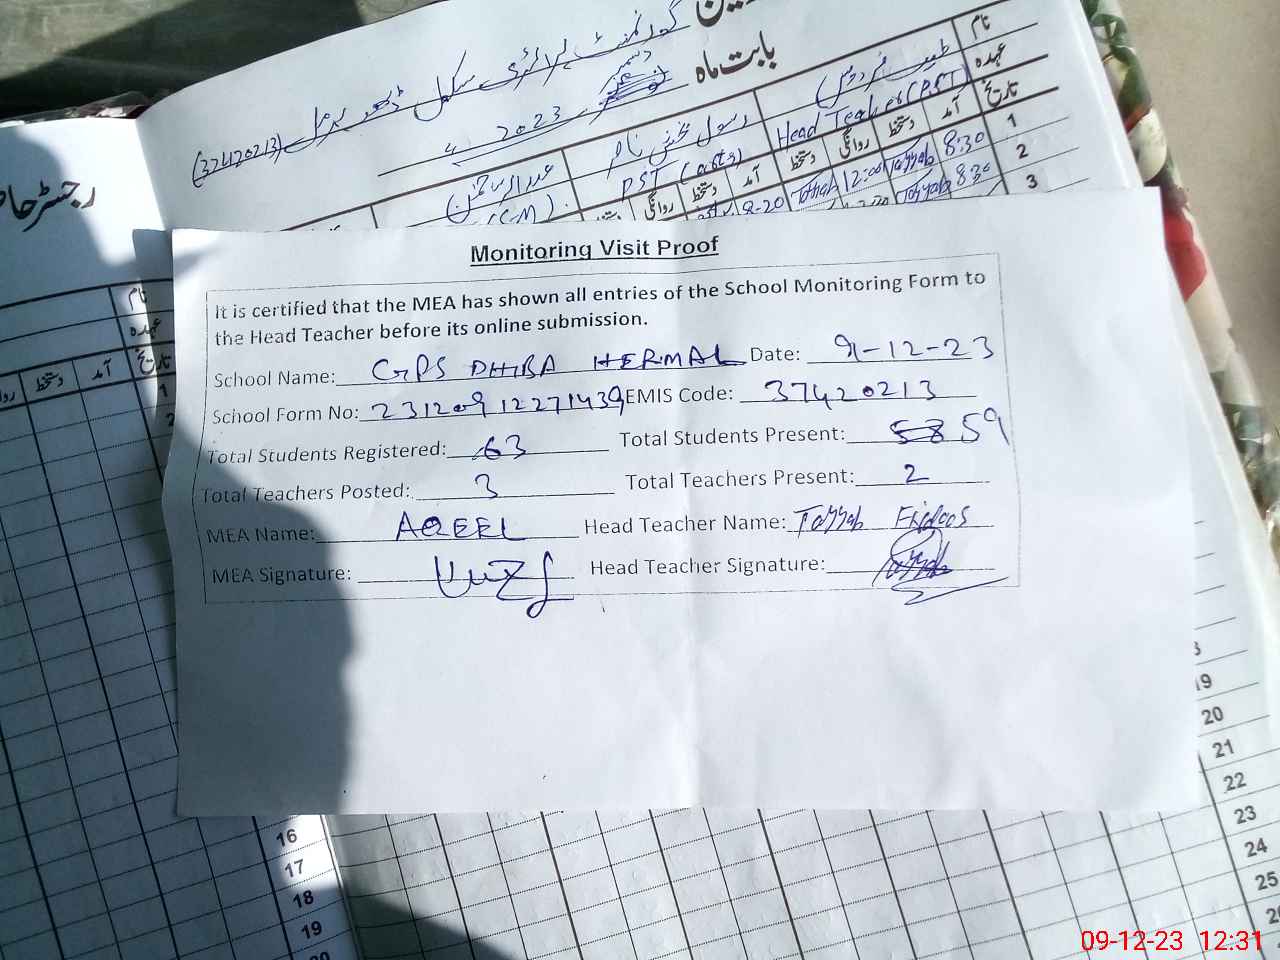 گورنمنٹ پرائمری سکول ڈھبہ ہرمل (37420213)
بابت ماہ دسمبر 2023
نام
عہدہ Head Teacher (PST) PST
تاریخ آمد دستخط روانگی دستخط آمد دستخط روانگی
1 8:30 Tayyab 12:00 Tayyab
2 8:30 Tayyab
3
رجسٹر حا
نام
عہدہ
تاریخ آمد دستخط
1
Monitoring Visit Proof
It is certified that the MEA has shown all entries of the School Monitoring Form to
the Head Teacher before its online submission.
School Name: GPS DHIBA HERMAL Date: 9-12-23
School Form No: 23120912271439 EMIS Code: 37420213
Total Students Registered: 63 Total Students Present: 58 59
Total Teachers Posted: 3 Total Teachers Present: 2
MEA Name: AQEEL Head Teacher Name: Tayyab Firdoos
MEA Signature: Head Teacher Signature: Tayyab
16
17
18
19
20
19
20
21
22
23
24
25
09-12-23 12:31